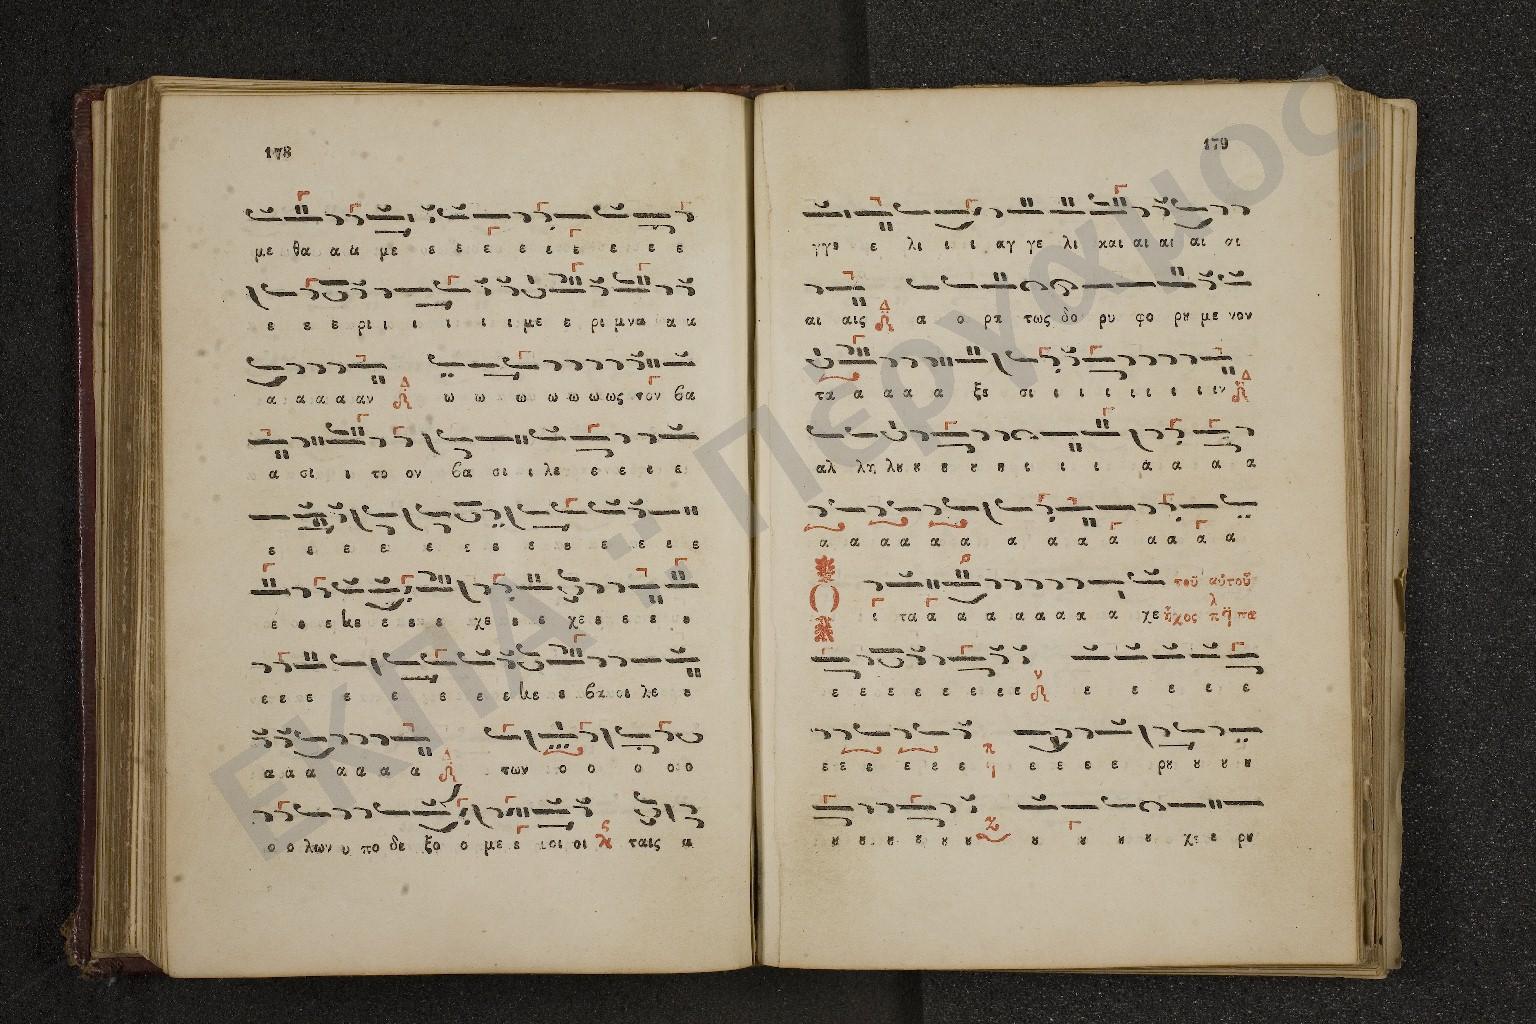 178
με θα α α με ε ε ε ε ε ε ε ε ε
ε ε ε ρι ι ι ι ι ι ι με ε ρι μνα α α
α α α α αν ω ω ω ω ω ω ως τον βα
α σι ι το ον βα σι ι λε ε ε ε ε
ε ε ε ε ε ε ε ε ε ε ε ε ε
ε ε ε χε ε ε ε χε ε ε χε ε ε ε ε
ε ε ε ε ε ε ε ε χε ε βα σι λε
α α α α α α α των ο ο ο ο ο
ο ο λων υ πο δε ξο ο με ε νοι οι ταις α
179
γγε ε λι ι ι αγ γε λι και αι αι αι αι
αι αις α ο ρα τως δο ρυ φο ρȣ με νον
τα α α α α ξε σι ι ι ι ι ι ι ιν
αλ λη λȣ ȣ ȣ ȣ ȣ ι ι ι ά α α α
α α α α α α α α α α α α α α
τοῦ αὐτοῦ
Ο ι τα α α α α α α α α χε ἦχος πλ πα
ε ε ε ε ε ε ε ε ε ε ε ε ε ε ε
ε ε ε ε ε ε ε ε ε ε ρȣ ȣ ȣ ȣ
ȣ ȣ ȣ ȣ ȣ ȣ ȣ ȣ ȣ ȣ χε ε ρȣ
ΕΚΠΑ: Πέργαμος